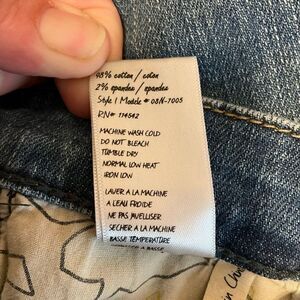 98% cotton / coton
2% spandex / spandex
Style / Modèle # 08N-7005
RN# 114542
MACHINE WASH COLD
DO NOT BLEACH
TUMBLE DRY
NORMAL LOW HEAT
IRON LOW
LAVER A LA MACHINE
A L'EAU FROIDE
NE PAS JAVELLISER
SECHER A LA MACHINE
BASSE TEMPERATURE
A BASSE